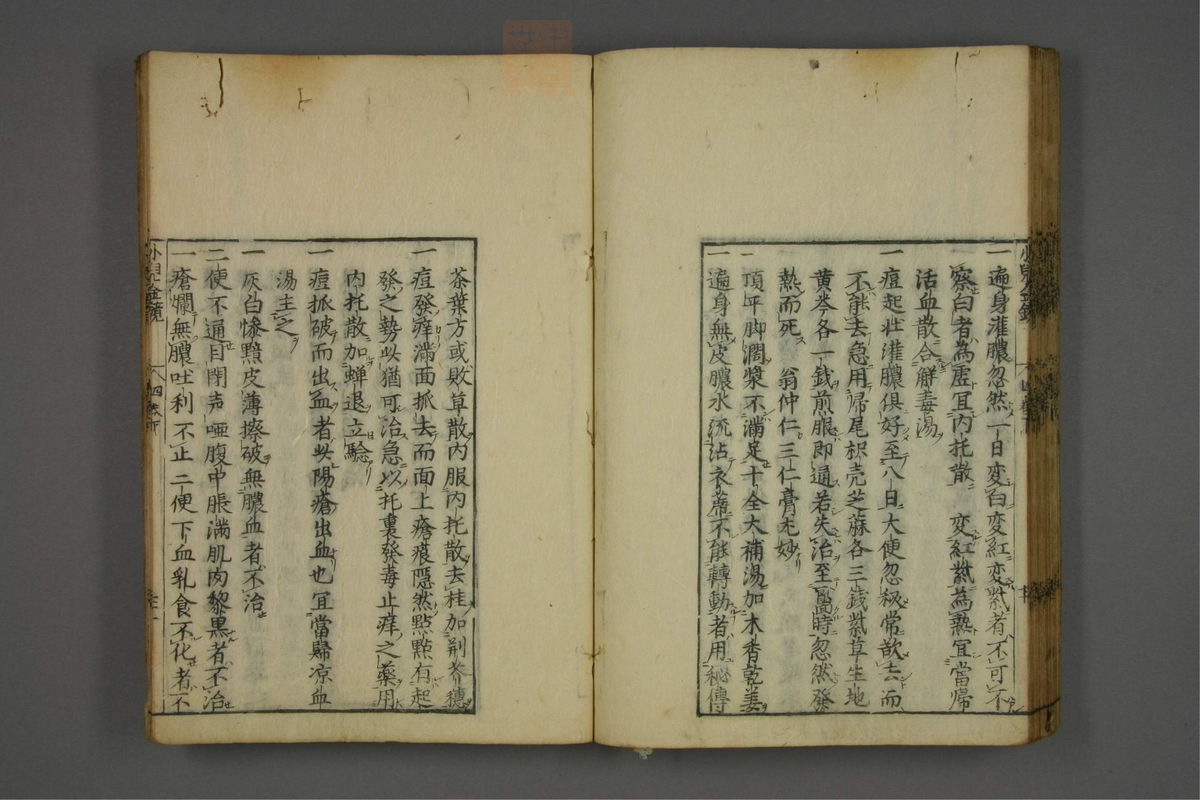 一 遍身灌膿忽然一日変白変紅変紫者不可不
察白者為虚宜内托散 変紅紫為熱宜當帰
活血散合觧毒湯
一 痘起壮灌膿俱好至八日大便忽秘常欲去而
不能去急用帰尾枳壳芝蔴各三銭紫草生地
黄芩各一銭煎服即通若失治至靨時忽然發
熱而死 翁仲仁三仁膏尤妙
一 頂平脚濶漿不滿足十全大補湯加木香乾姜
一 遍身無皮膿水流沾衣蓆不能轉動者用秘傳
茶葉方或敗草散内服内托散去桂加荆芥穗
一 痘發痒滿面抓去而面上瘡痕隠然㸃㸃有起
發之勢此猶可治急以托裏發毒止痒之藥用
内托散加蟬退立驗
一 痘抓破而出血者此陽瘡出血也宜當歸凉血
湯主之
一 灰白慘黯皮薄擦破無膿血者不治
二便不通目閉声啞腹中脹滿肌肉黎黒者不治
一 瘡爛無膿吐利不止二便下血乳食不化者不
小兒全鏡